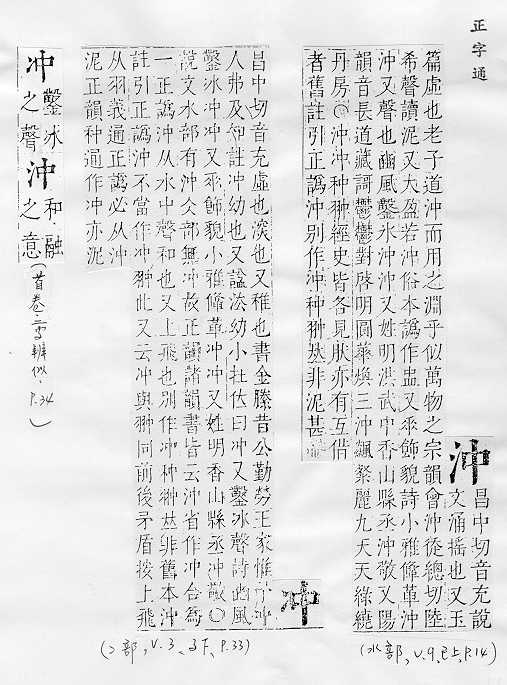 正字通
沖
昌中切音充說
文涌搖也又玉
篇虛也老子道沖而用之淵乎似萬物之宗韻會沖從總切陸
希聲讀泥又大盈若沖俗本譌作盅又乘飾貌詩小雅鞗革沖
沖又聲也豳風鑿氷沖沖又姓明洪武中香山縣丞沖敬又陽
韻音長道藏謌鬱鬱對啓明圓華煥三沖飆粲麗九天天綠繞
丹房○沖冲种翀經史皆各見肰亦有互借
者舊註引正譌沖別作冲种翀𠀤非泥甚
(水部,V.9,巳上,P.14)
冲
昌中切音充虛也淡也又稚也書金縢昔公勤勞王家惟予冲
人弗及知註冲幼也又諡法幼小在位曰冲又鑿冰聲詩豳風
鑿冰冲冲又乘飾貌小雅鞗革冲冲又姓明香山縣丞冲敬○
說文水部有沖仌部無冲故正韻諸韻書皆云沖省作冲合為
一正譌沖从水中聲和也又上飛也別作冲种翀𠀤非舊本沖
註引正譌沖不當作冲翀此又云冲與翀同前後矛盾按上飛
从羽義通正譌必从沖
泥正韻种通作冲亦泥
(冫部,V.3,子下,P.33)
冲鑿冰之聲沖和融之意(首卷二字辨似,P.34)